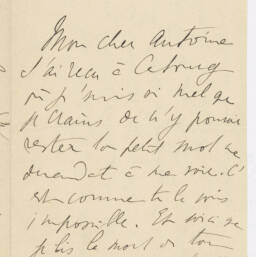 Mon cher Antoine
J'ai reçu à Cabourg
où je suis si mal que
je crains de n'y pouvoir
rester ton petit mot me
demandant à me voir. C'
est comme tu le vois
impossible. Et voici que
je lis la mort de ton